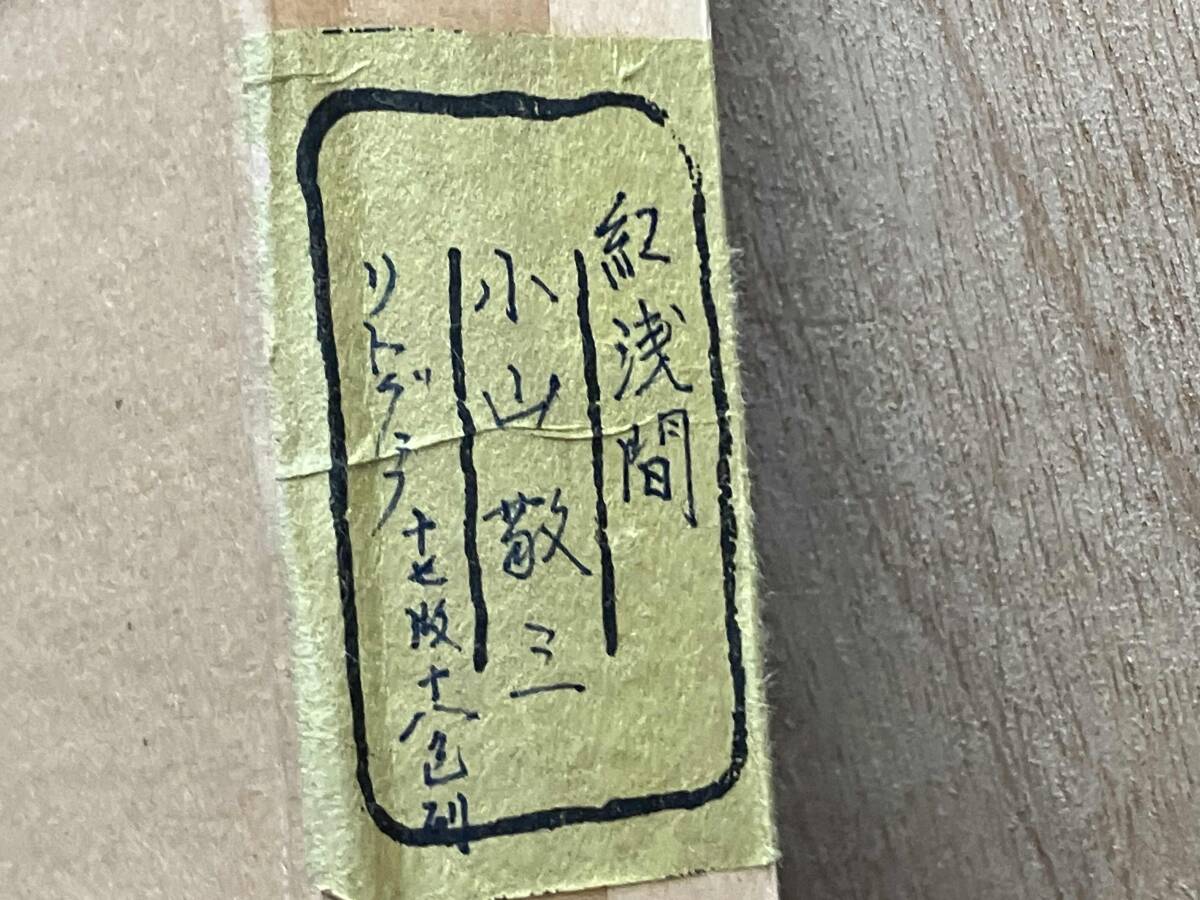 紅浅間
小山敬三
リトグラフ 十七版十八色刷